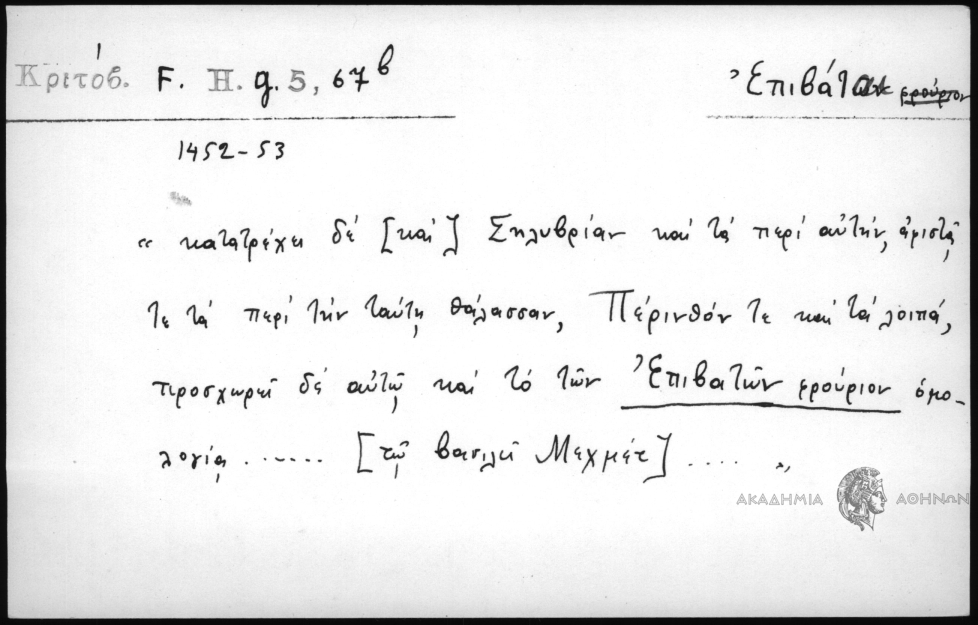 Κριτόβ. F. H. g. 5, 67β Ἐπιβάται φρούριον
1452-53
« κατατρέχει δέ [καί] Σηλυβρίαν καί τά περί αὐτήν,
τε τά περί τήν ταύτῃ θάλασσαν, Πέρινθόν τε καί τά λοιπά,
προσχωρεῖ δέ αὐτῷ καί τό τῶν Ἐπιβατῶν φρούριον ὁμο-
λογίᾳ ....... [τῷ βασιλεῖ Μεχμέτ] .... »
ΑΚΑΔΗΜΙΑ ΑΘΗΝΩΝ